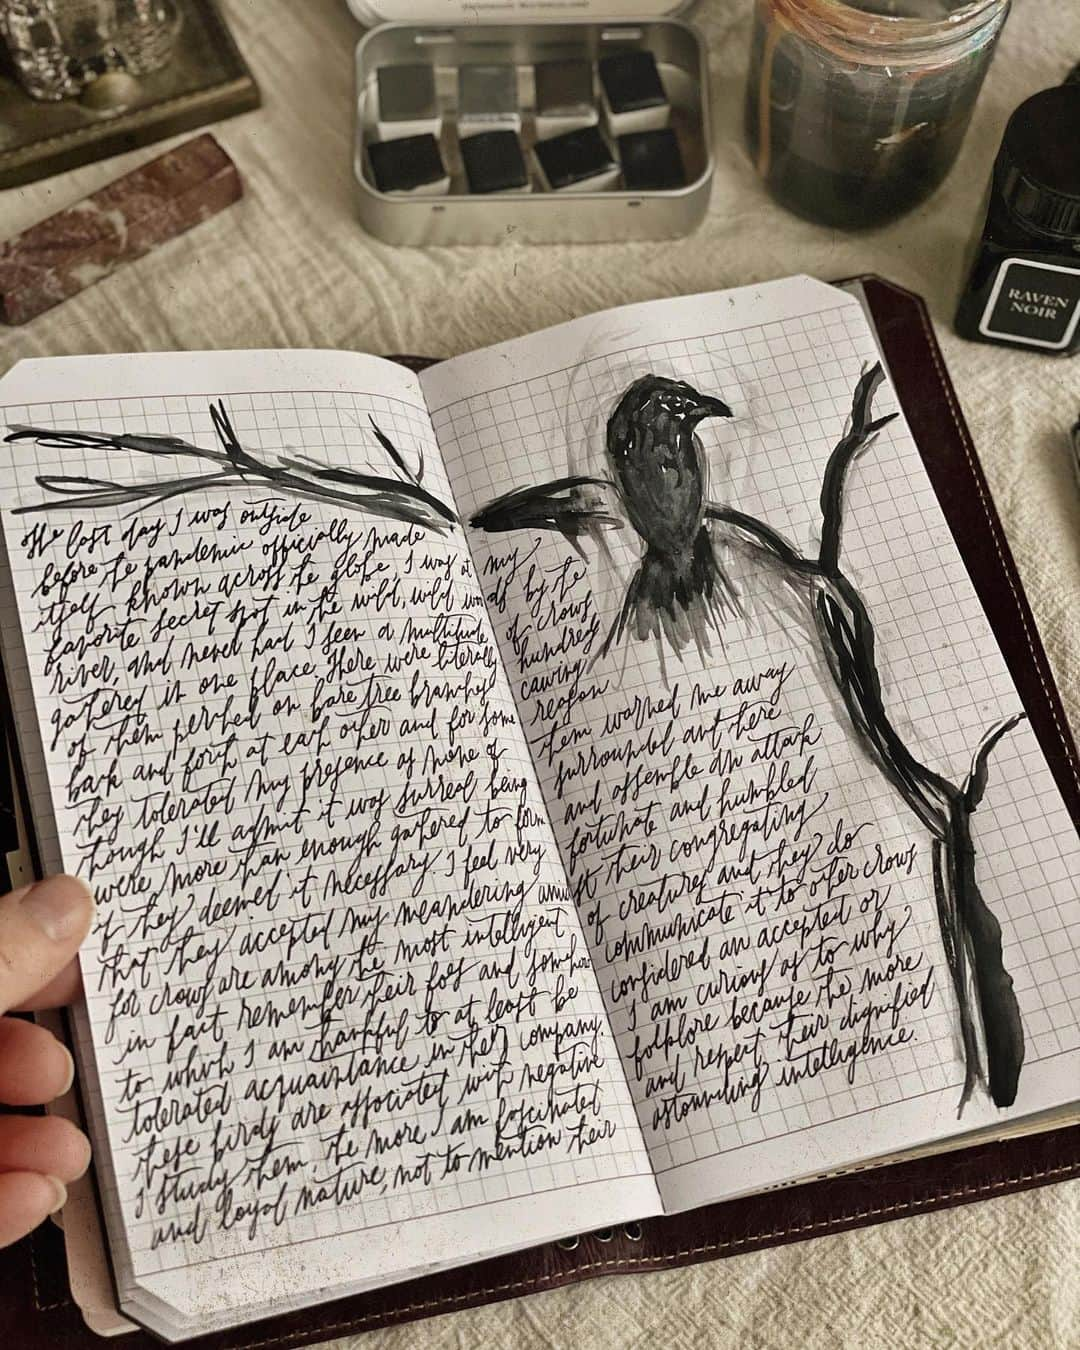 The last day I was outside
before the pandemic officially made
itself known across the globe, I was at my
favorite secret spot in the wild, wild woods by the
river, and never had I seen a multitude of crows
gathered in one place. There were literally hundreds
of them perched on bare tree branches cawing
back and forth at each other and for some reason
they tolerated my presence as none of them warned me away
though I'll admit it was surreal being surrounded and there
were more than enough gathered to form and assemble an attack
if they deemed it necessary. I feel very fortunate and humbled
that they accepted my meandering amidst their congregating
for crows are among the most intelligent of creatures and they do
in fact remember their foes and somehow communicate it to other crows
to which I am thankful to at least be considered an accepted or
tolerated acquaintance in their company. I am curious as to why
these birds are associated with negative folklore because the more
I study them, the more I am fascinated and respect their dignified
and loyal nature, not to mention their astounding intelligence.
RAVEN
NOIR